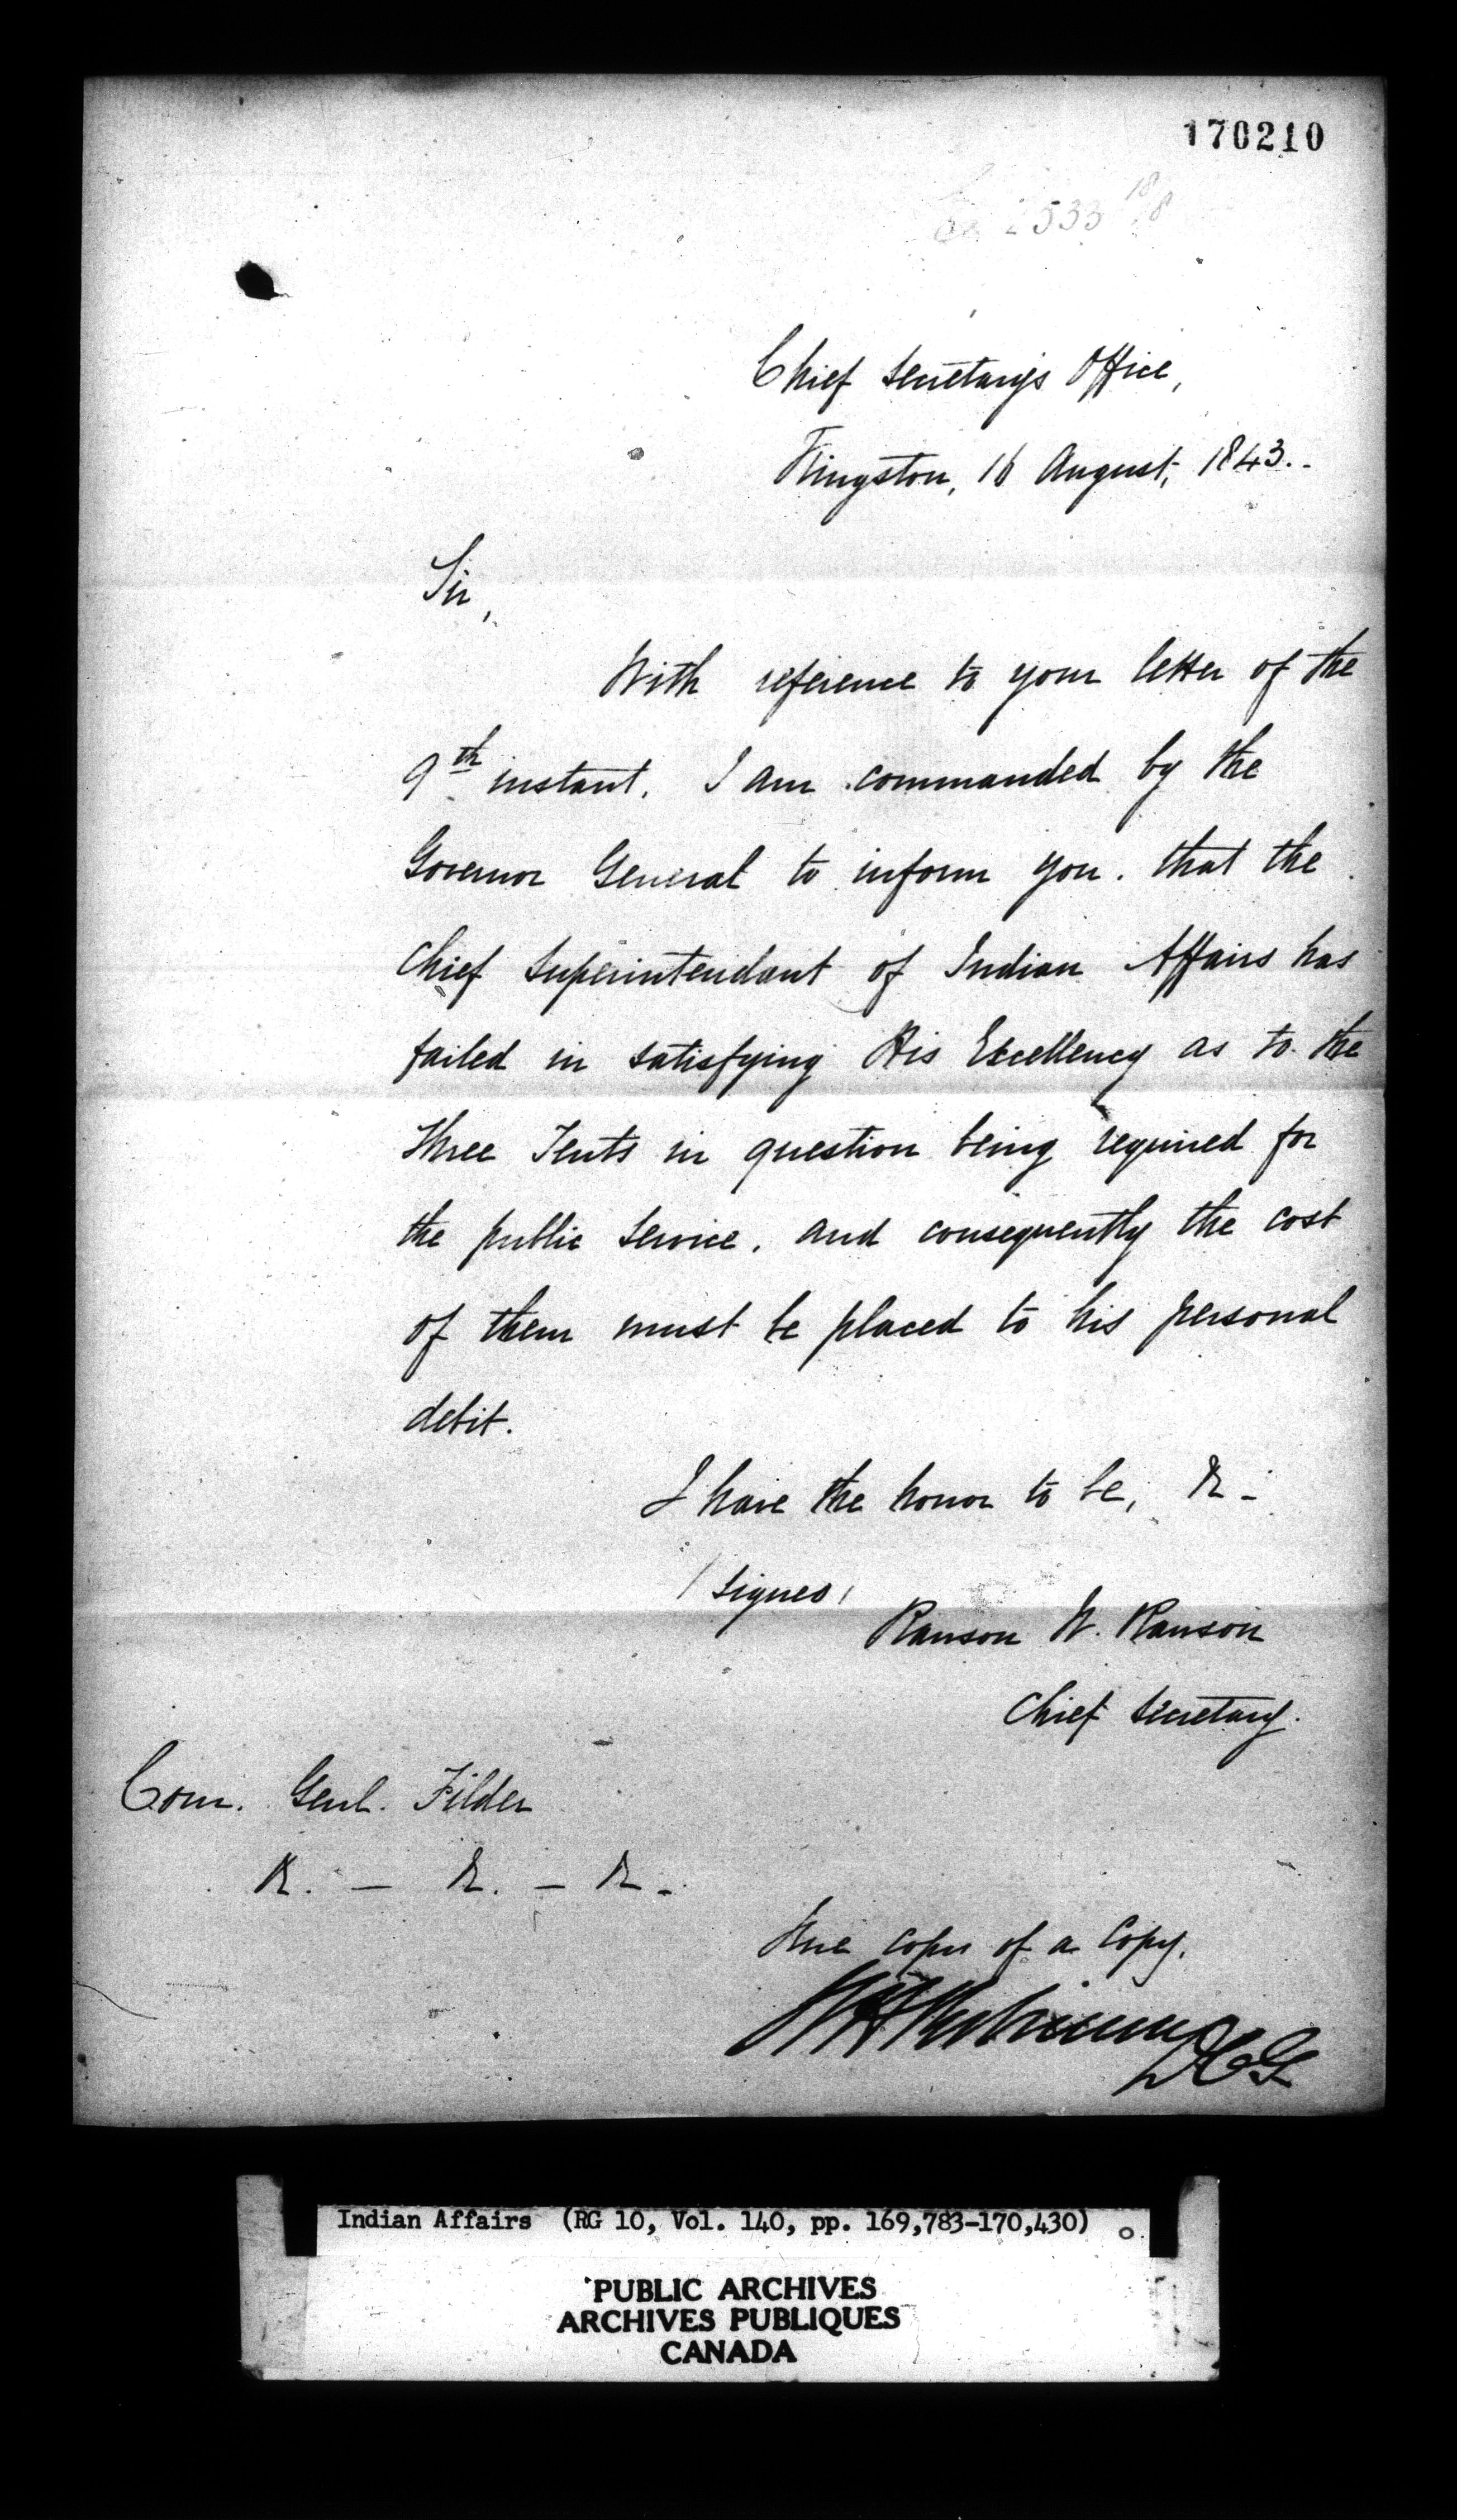 170210
2533 18/8
Chief Secretary's Office,
Kingston, 16 August, 1843.-
Sir,
With reference to your letter of the
9th instant. I am commanded by the
Governor General to inform you. that the
Chief Superintendant of Indian Affairs has
failed in satisfying His Excellency as to the
three Tents in question being required for
the public Service. and consequently the cost
of them must be placed to his personal
debit.
I have the honor to be, &-
/Signed/
Rawson W. Rawson
Chief Secretary.
Com. Genl. Filder
&. - &. - &-
True copy of a Copy.
DCG
Indian Affairs (RG 10, Vol. 140, pp. 169,783-170,430)
PUBLIC ARCHIVES
ARCHIVES PUBLIQUES
CANADA